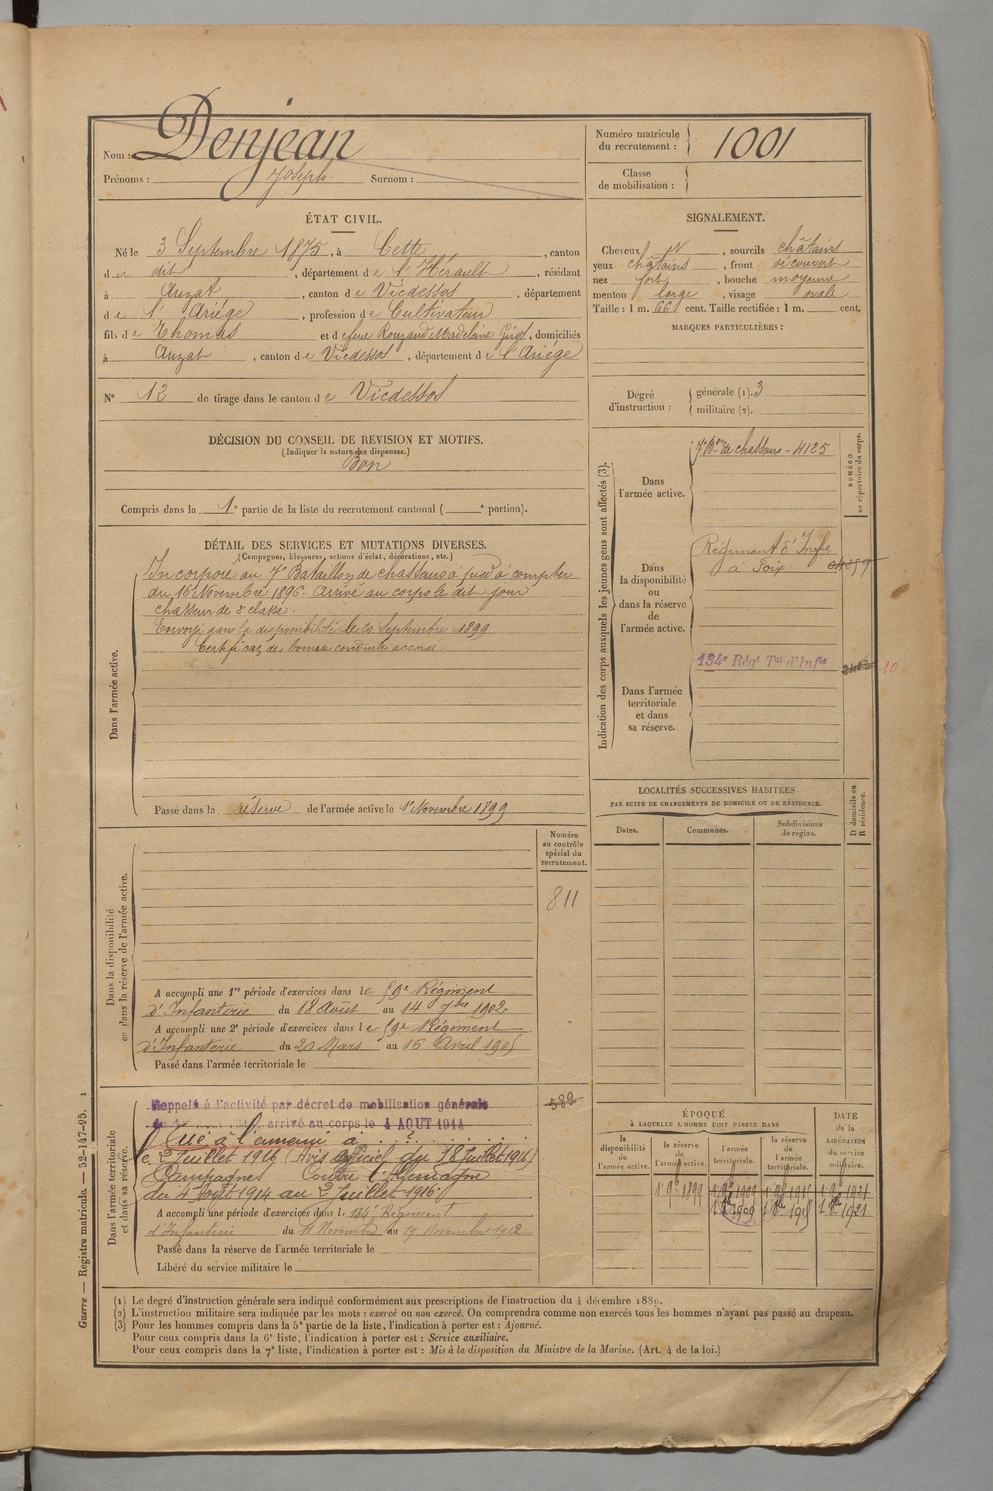 Nom : Denjean
Prénoms : Joseph Surnom :
Numéro matricule du recrutement : 1001
Classe de mobilisation :
ÉTAT CIVIL.
Né le 3 Septembre 1875, à Cette, canton
du dit, département de l'Hérault, résidant
à Auzat, canton de Vicdessos, département
de l'Ariége, profession de Cultivateur
fils de Thomas et de feue Rouzaud Madeleine, domiciliés
à Auzat, canton de Vicdessos, département de l'Ariége
N° 12 de tirage dans le canton de Vicdessos
SIGNALEMENT.
Cheveux, sourcils châtains
yeux châtains, front découvert
nez fort, bouche moyenne
menton large, visage ovale
Taille : 1 m. 66 cent. Taille rectifiée : 1 m. cent.
MARQUES PARTICULIÈRES :
Degré d'instruction : générale (1). 3
militaire (2).
DÉCISION DU CONSEIL DE REVISION ET MOTIFS.
(Indiquer la nature des dispenses.)
Bon
Compris dans la 1e partie de la liste du recrutement cantonal ( e portion).
DÉTAIL DES SERVICES ET MUTATIONS DIVERSES.
(Campagnes, blessures, actions d'éclat, décorations, etc.)
Dans l'armée active.
Incorporé au 7e Bataillon de chasseurs à pied à compter
du 16 Novembre 1896. Arrivé au corps le dit jour
chasseur de 2e classe.
Envoyé dans la disponibilité le 20 Septembre 1899
Certificat de bonne conduite accordé
Passé dans la réserve de l'armée active le 1er Novembre 1899
Indication des corps auxquels les jeunes gens sont affectés (3).
NUMÉRO au répertoire du corps.
Dans l'armée active.
7e Bon de chasseurs - 4125
Dans la disponibilité ou dans la réserve de l'armée active.
Régiment d'Infie
à Foix
Dans l'armée territoriale et dans sa réserve.
134e Régt Tal d'Infie
10
LOCALITÉS SUCCESSIVES HABITÉES
PAR SUITE DE CHANGEMENTS DE DOMICILE OU DE RÉSIDENCE.
Dates. Communes. Subdivisions de région. D domicile ou R résidence.
Numéro au contrôle spécial du recrutement.
811
Dans la disponibilité ou dans la réserve de l'armée active.
A accompli une 1re période d'exercices dans le 59e Régiment
d'Infanterie du 18 Août au 14 7bre 1902
A accompli une 2e période d'exercices dans le 59e Régiment
d'Infanterie du 20 Mars au 16 Avril 1905
Passé dans l'armée territoriale le
Dans l'armée territoriale et dans sa réserve.
589
Rappelé à l'activité par décret de mobilisation générale
arrivé au corps le 4 AOUT 1914
Tué à l'ennemi à . . ? . . . . . .
le 2 Juillet 1916 (Avis officiel du 18 Juillet 1916)
Campagnes Contre l'Allemagne
du 4 Août 1914 au 2 Juillet 1916
A accompli une période d'exercices dans le 134e Régiment
d'Infanterie du 11 Novembre au 19 Novembre 1912
Passé dans la réserve de l'armée territoriale le
Libéré du service militaire le
ÉPOQUE
À LAQUELLE L'HOMME DOIT PASSER DANS
la disponibilité de l'armée active. la réserve de l'armée active. l'armée territoriale. la réserve de l'armée territoriale.
DATE de la LIBÉRATION du service militaire.
1 9bre 1899 1 9bre 1909 1 9bre 1915 1 9bre 1921
1 8bre 1909 1 8bre 1915 1 8bre 1921
(1) Le degré d'instruction générale sera indiqué conformément aux prescriptions de l'instruction du 4 décembre 1889.
(2) L'instruction militaire sera indiquée par les mots : exercé ou non exercé. On comprendra comme non exercés tous les hommes n'ayant pas passé au drapeau.
(3) Pour les hommes compris dans la 5e partie de la liste, l'indication à porter est : Ajourné.
Pour ceux compris dans la 6e liste, l'indication à porter est : Service auxiliaire.
Pour ceux compris dans la 7e liste, l'indication à porter est : Mis à la disposition du Ministre de la Marine. (Art. 4 de la loi.)
Guerre — Registre matricule. — 52-147-95. 1